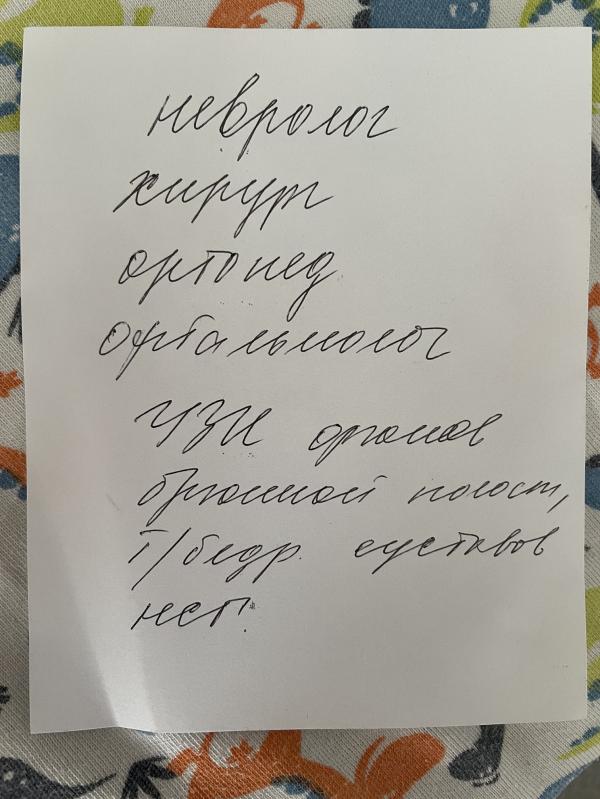 невролог
хирург
ортопед
офтальмолог
УЗИ органов
брюшной полости,
т/бедр. суставов
нсг.